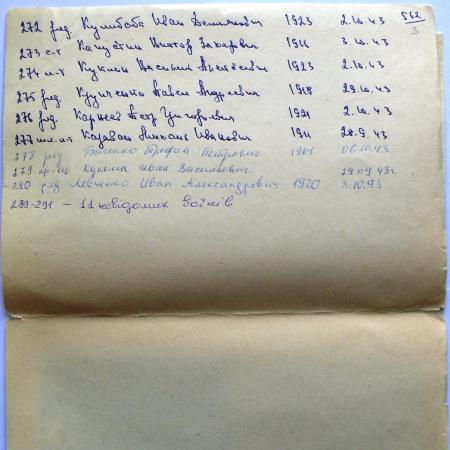 562
3
272 ряд Кулибаба Иван Демянович 1923 2.10.43
273 с-т Капустин Виктор Захарович 1911 3.10.43
274 м-т Куклин Василий 1923 2.10.43
275 ряд Кушченко Павел Андреевич 1918 29.10.43
276 ряд Карнеев Петр Григорьевич 1921 2.10.43
277 Караван Михаил Иванович 1911 28.9.43
278 ряд Трофим Петрович 1901 06.10.43
279 Кулеша Иван Васильевич 29.09.43г
280 р-д Левченко Иван Александрович 1920 3.10.43
281-291 – 11 невідомих воїнів